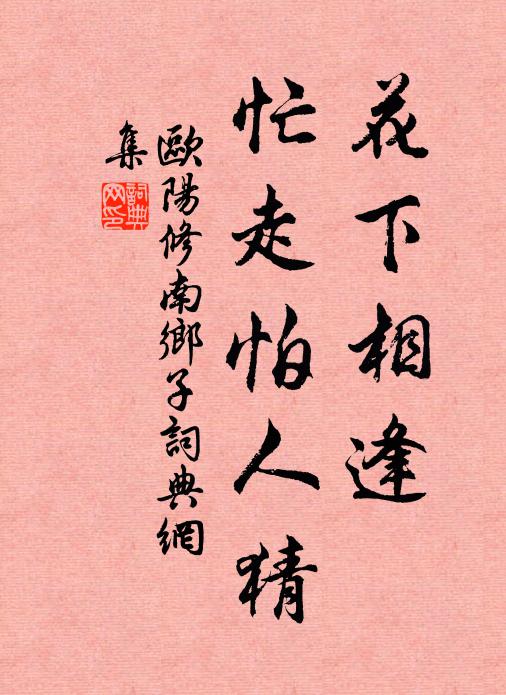 花下相逢
忙走怕人猜
歐陽修南鄉子詞典網
集
詞典網印